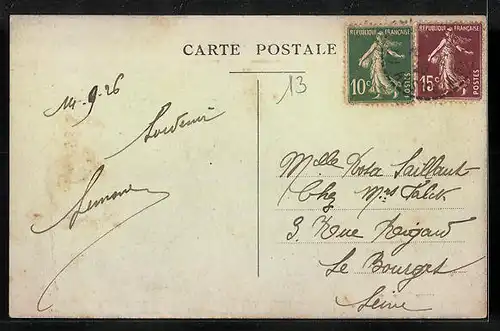 CARTE POSTALE
RÉPUBLIQUE FRANÇAISE
10c
POSTES
RÉPUBLIQUE FRANÇAISE
15c
POSTES
13
14-9-26
Souvenir
Simone
Melle Rosa Saillant
Chez Mrs
3 Rue Rigaud
Le Bourget
Seine